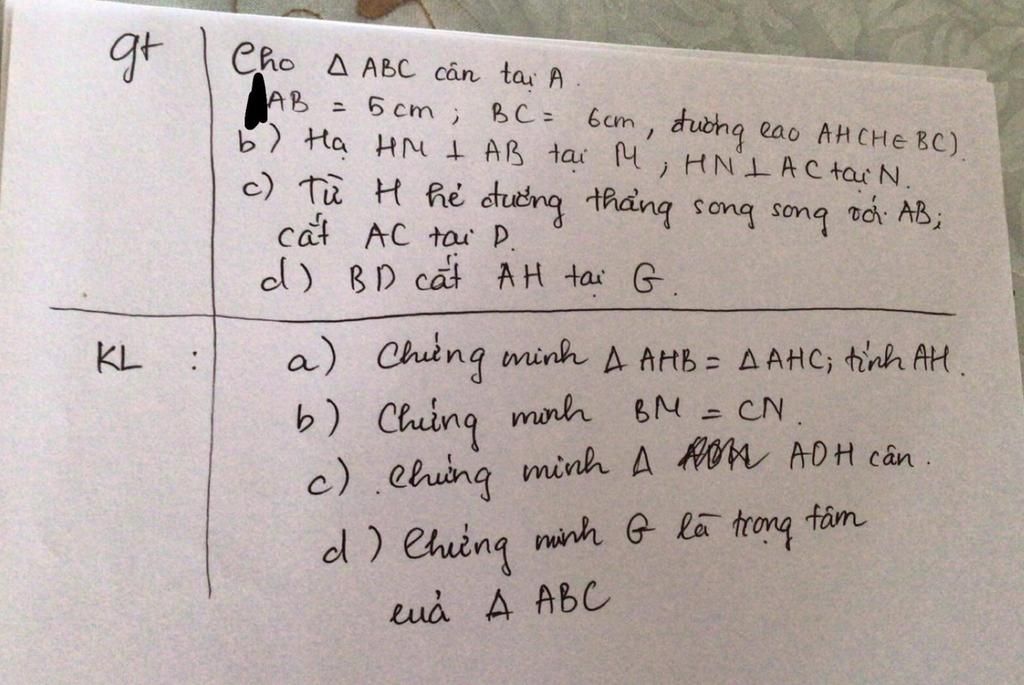 gt
Cho Δ ABC cân tại A.
AB = 5cm ; BC = 6cm, đường cao AH (H∈ BC).
b) Hạ HM ⊥ AB tại M ; HN ⊥ AC tại N.
c) Từ H kẻ đường thẳng song song với AB;
cắt AC tại D.
d) BD cắt AH tại G.
KL :
a) Chứng minh Δ AHB = Δ AHC; tính AH.
b) Chứng minh BM = CN.
c) Chứng minh Δ ADH cân.
d) Chứng minh G là trọng tâm
của Δ ABC